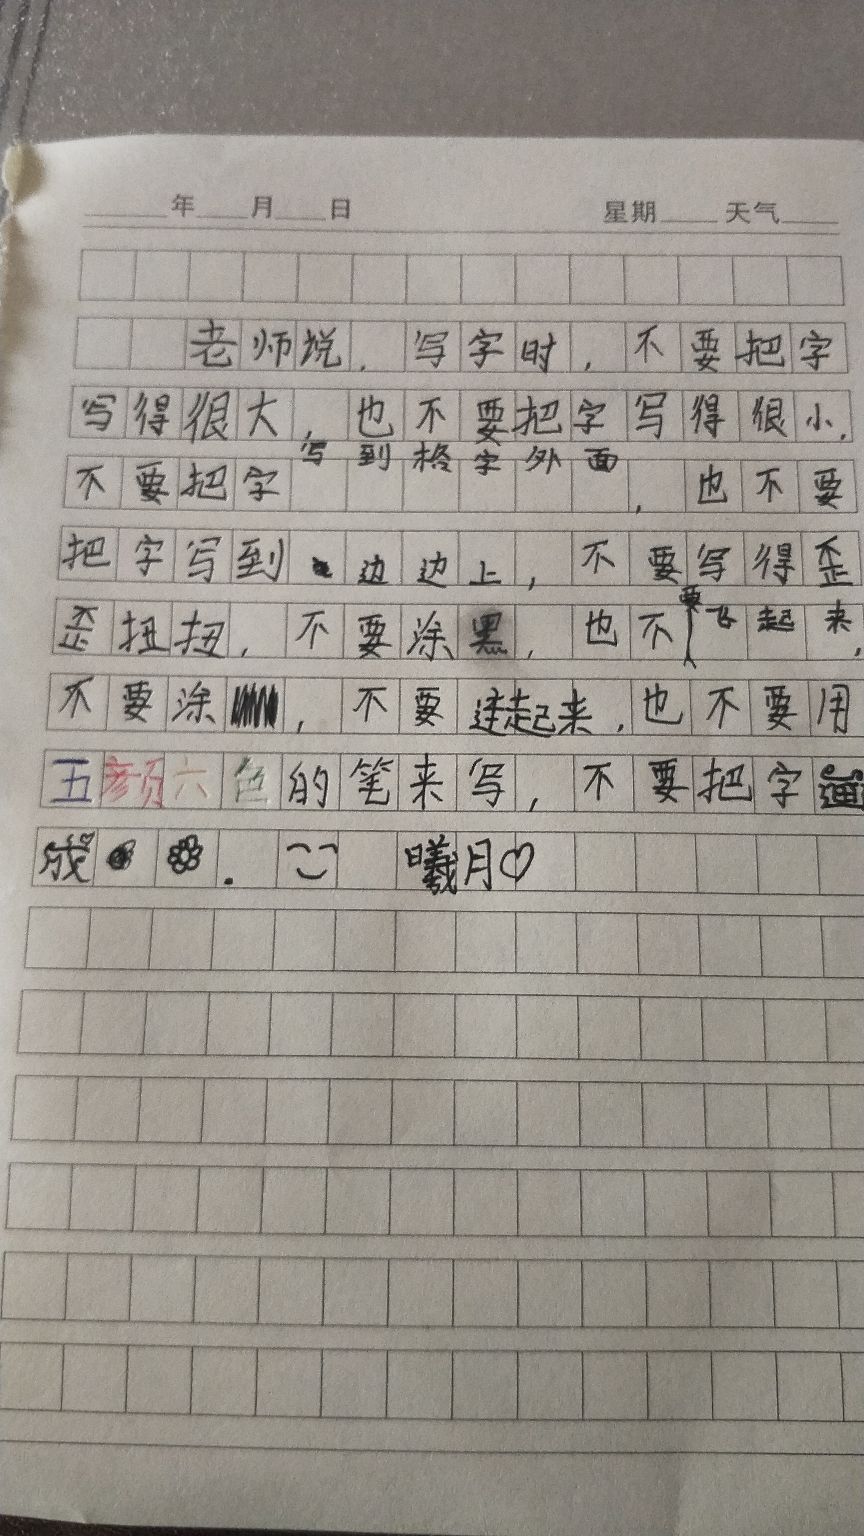 年 月 日 星期 天气
老师说,写字时,不要把字
写得很大,也不要把字写得很小,
写到格字外面
不要把字,也不要
把字写到边边上,不要写得歪
歪扭扭,不要涂黑,也不要飞起来,
不要涂,不要连起来,也不要用
五颜六色的笔来写,不要把字画
成。曦月♡